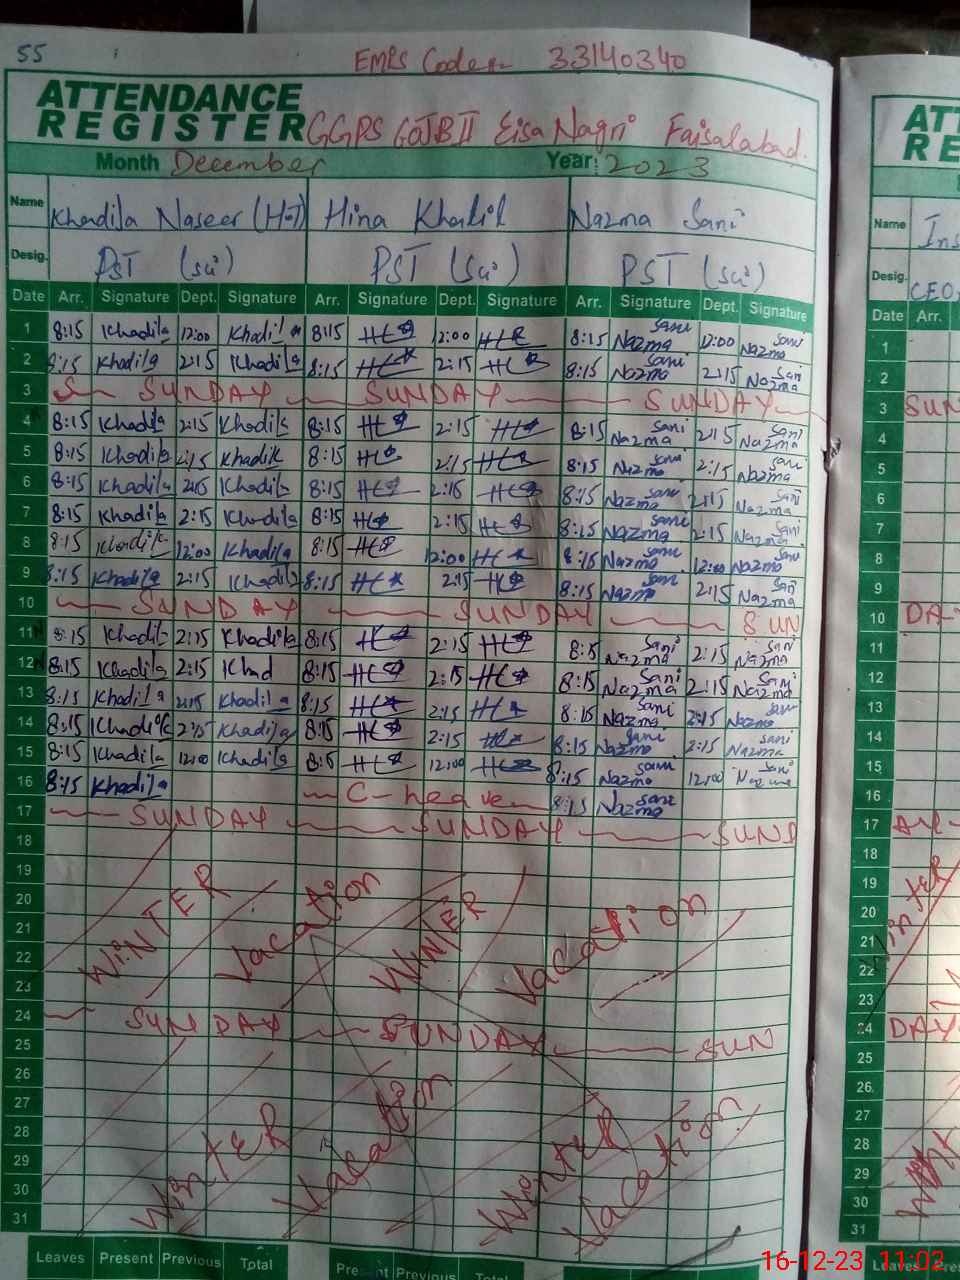 55
EMIS Code:- 33140340
ATTENDANCE
REGISTER GGPS GOJB II Eisa Nagri Faisalabad.
Month December Year: 2023
Name Khadija Naseer (H.T) Hina Khalil Nazma Sani
Desig. PST (Sci) PST (Sci) PST (Sci)
Date Arr. Signature Dept. Signature Arr. Signature Dept. Signature Arr. Signature Dept. Signature
1 8:15 Khadija 12:00 Khadija 8:15 12:00 8:15 Nazma Sani 12:00 Nazma Sani
2 8:15 Khadija 2:15 Khadija 8:15 2:15 8:15 Nazma Sani 2:15 Nazma Sani
3 SUNDAY SUNDAY SUNDAY
4 8:15 Khadija 2:15 Khadija 8:15 2:15 8:15 Nazma Sani 2:15 Nazma Sani
5 8:15 Khadija 2:15 Khadija 8:15 2:15 8:15 Nazma Sani 2:15 Nazma Sani
6 8:15 Khadija 2:15 Khadija 8:15 2:15 8:15 Nazma Sani 2:15 Nazma Sani
7 8:15 Khadija 2:15 Khadija 8:15 2:15 8:15 Nazma Sani 2:15 Nazma Sani
8 8:15 Khadija 12:00 Khadija 8:15 12:00 8:15 Nazma Sani 12:00 Nazma Sani
9 8:15 Khadija 2:15 Khadija 8:15 2:15 8:15 Nazma Sani 2:15 Nazma Sani
10 SUNDAY SUNDAY SUN
11 8:15 Khadija 2:15 Khadija 8:15 2:15 8:15 Nazma Sani 2:15 Nazma Sani
12 8:15 Khadija 2:15 Khad 8:15 2:15 8:15 Nazma Sani 2:15 Nazma Sani
13 8:15 Khadija 2:15 Khadija 8:15 2:15 8:15 Nazma Sani 2:15 Nazma Sani
14 8:15 Khadija 2:15 Khadija 8:15 2:15 8:15 Nazma Sani 2:15 Nazma Sani
15 8:15 Khadija 12:00 Khadija 8:15 12:00 8:15 Nazma Sani 12:00 Nazma Sani
16 8:15 Khadija C-heave 8:15 Nazma Sani
17 SUNDAY SUNDAY SUND
18
19
20
21 WINTER Vacation WINTER Vacation
22
23
24 SUNDAY SUNDAY SUN
25
26
27
28
29 Winter Vacation Winter Vacation
30
31
Leaves Present Previous Total Present Previous Total
ATT
RE
Name Ins
Desig. CEO
Date Arr.
1
2
3 SUN
4
5
6
7
8
9
10 DAY
11
12
13
14
15
16
17 AY
18
19
20 Winter
21
22
23
24 DAY
25
26
27
28
29
30
31
Leaves Pres
16-12-23 11:02